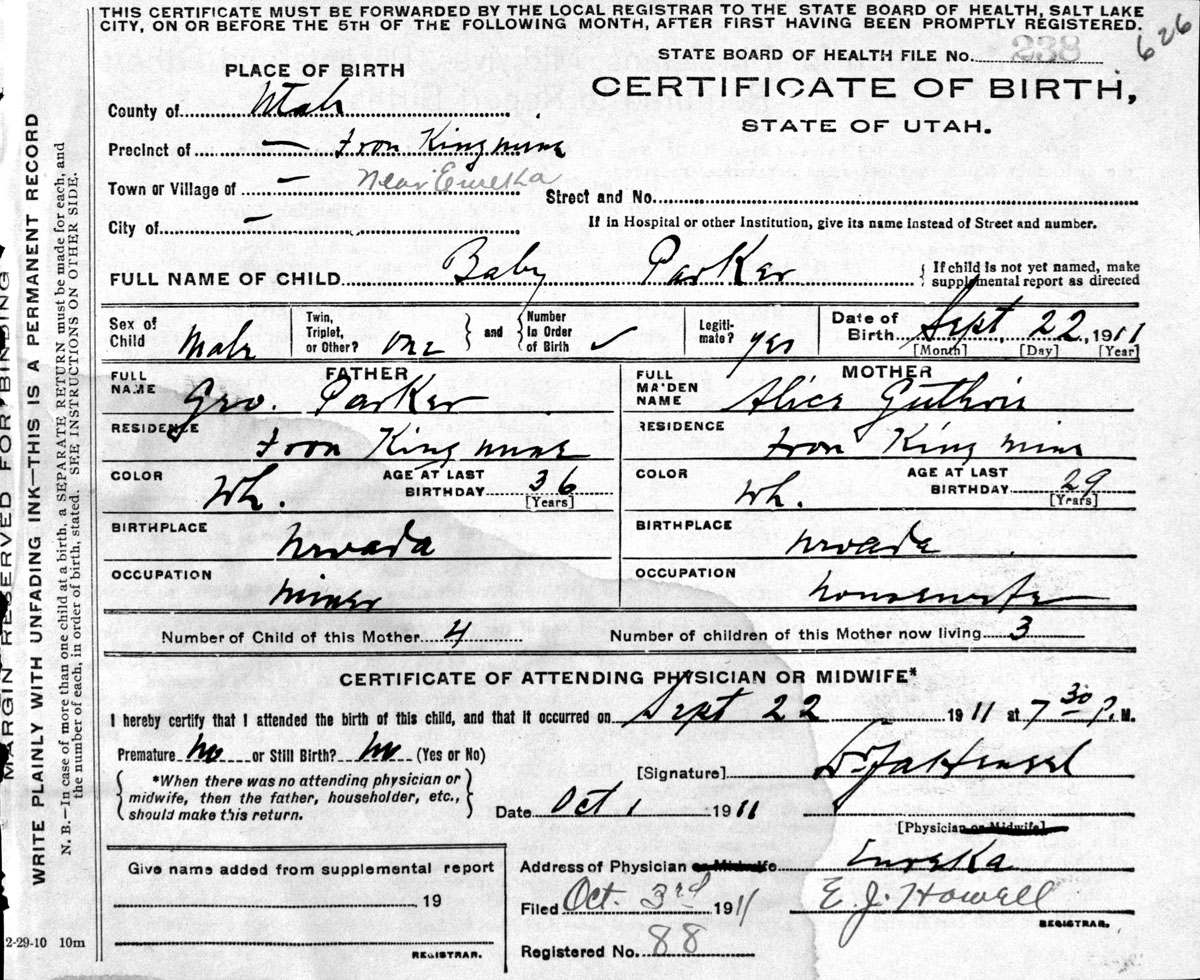 THIS CERTIFICATE MUST BE FORWARDED BY THE LOCAL REGISTRAR TO THE STATE BOARD OF HEALTH, SALT LAKE
CITY, ON OR BEFORE THE 5TH OF THE FOLLOWING MONTH, AFTER FIRST HAVING BEEN PROMPTLY REGISTERED.
626
STATE BOARD OF HEALTH FILE No. 238
PLACE OF BIRTH
CERTIFICATE OF BIRTH,
STATE OF UTAH.
County of Utah
Precinct of — Iron King mine
Town or Village of — Near Eureka
Street and No.
City of —
If in Hospital or other Institution, give its name instead of Street and number.
FULL NAME OF CHILD Baby Parker
{ If child is not yet named, make
supplemental report as directed
Sex of Child Male
Twin, Triplet, or Other? one } and { Number In Order of Birth ✓
Legiti- mate? yes
Date of Birth Sept 22, 1911
[Month] [Day] [Year]
FATHER
FULL NAME Geo. Parker
RESIDENCE Iron King mine
COLOR Wh. AGE AT LAST BIRTHDAY 36
[Years]
BIRTHPLACE Nevada
OCCUPATION miner
MOTHER
FULL MAIDEN NAME Alice Guthrie
RESIDENCE Iron King mine
COLOR Wh. AGE AT LAST BIRTHDAY 29
[Years]
BIRTHPLACE Nevada
OCCUPATION housewife
Number of Child of this Mother 4 Number of children of this Mother now living 3
CERTIFICATE OF ATTENDING PHYSICIAN OR MIDWIFE*
I hereby certify that I attended the birth of this child, and that it occurred on Sept 22 1911 at 7 30 P. M.
Premature no or Still Birth? no (Yes or No)
{ *When there was no attending physician or
midwife, then the father, householder, etc.,
should make this return. }
[Signature] Dr
Date Oct 1 1911
[Physician or Midwife]
Address of Physician or Midwife Eureka
Filed Oct. 3rd 1911 E. J. Howell
REGISTRAR.
Registered No. 88
Give name added from supplemental report
19
REGISTRAR.
2-29-10 10m
MARGIN RESERVED FOR BINDING
WRITE PLAINLY WITH UNFADING INK—THIS IS A PERMANENT RECORD
N. B.—In case of more than one child at a birth, a SEPARATE RETURN must be made for each, and
the number of each, in order of birth, stated. SEE INSTRUCTIONS ON OTHER SIDE.